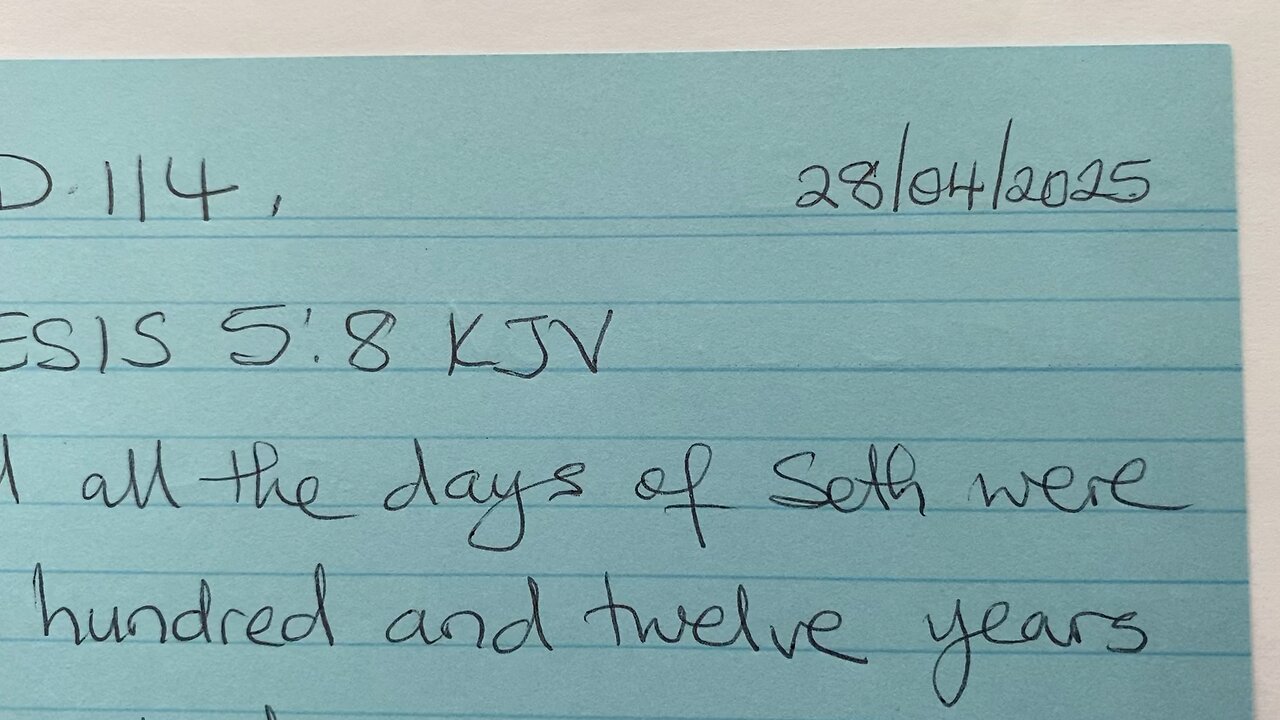 D.114, 28/04/2025
ESIS 5:8 KJV
all the days of Seth were
hundred and twelve years